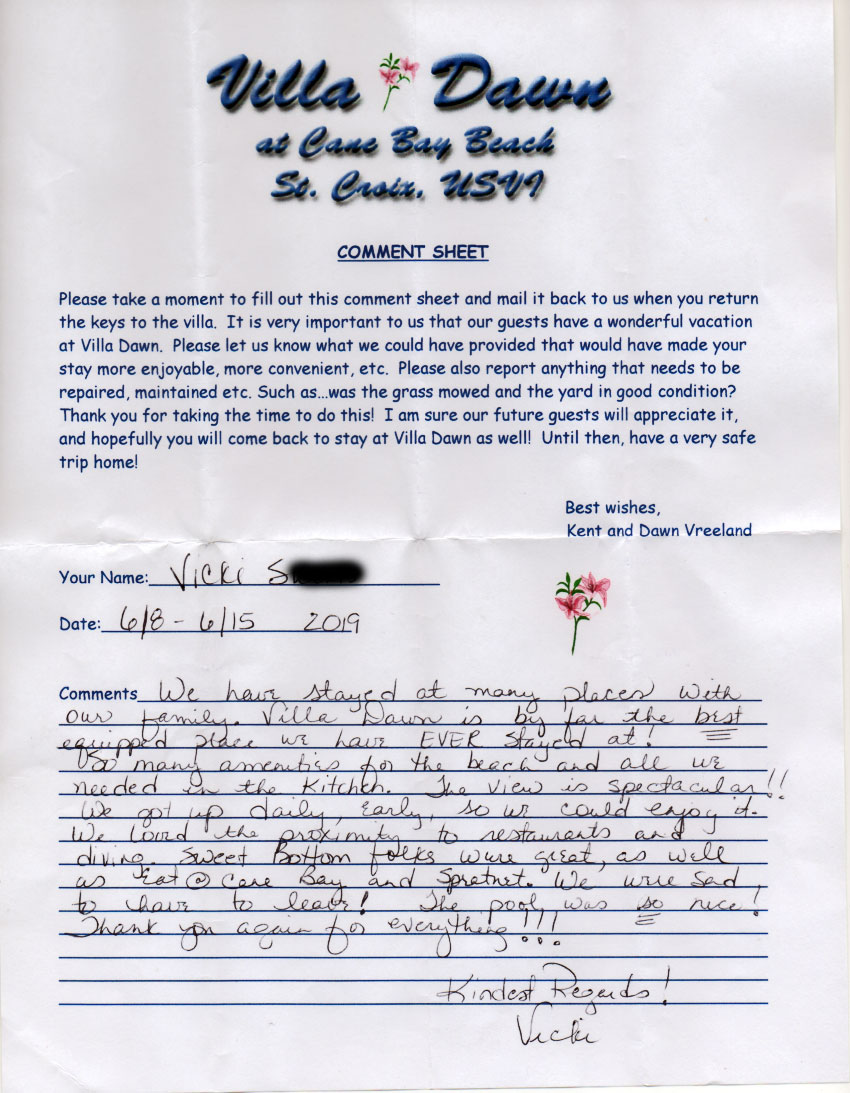 Villa Dawn
at Cane Bay Beach
St. Croix, USVI
COMMENT SHEET
Please take a moment to fill out this comment sheet and mail it back to us when you return
the keys to the villa. It is very important to us that our guests have a wonderful vacation
at Villa Dawn. Please let us know what we could have provided that would have made your
stay more enjoyable, more convenient, etc. Please also report anything that needs to be
repaired, maintained etc. Such as...was the grass mowed and the yard in good condition?
Thank you for taking the time to do this! I am sure our future guests will appreciate it,
and hopefully you will come back to stay at Villa Dawn as well! Until then, have a very safe
trip home!
Best wishes,
Kent and Dawn Vreeland
Your Name: Vicki S
Date: 6/8 - 6/15 2019
Comments We have stayed at many places with
our family. Villa Dawn is by far the best
equipped place we have EVER stayed at!
So many amenities for the beach and all we
needed in the Kitchen. The view is spectacular!!
We got up daily, early, so we could enjoy it.
We loved the proximity to restaurants and
diving. Sweet Bottom folks were great, as well
as Eat @ Cane Bay and Spratnet. We were sad
to have to leave! The pool was so nice!
Thank you again for everything!!!
Kindest Regards!
Vicki